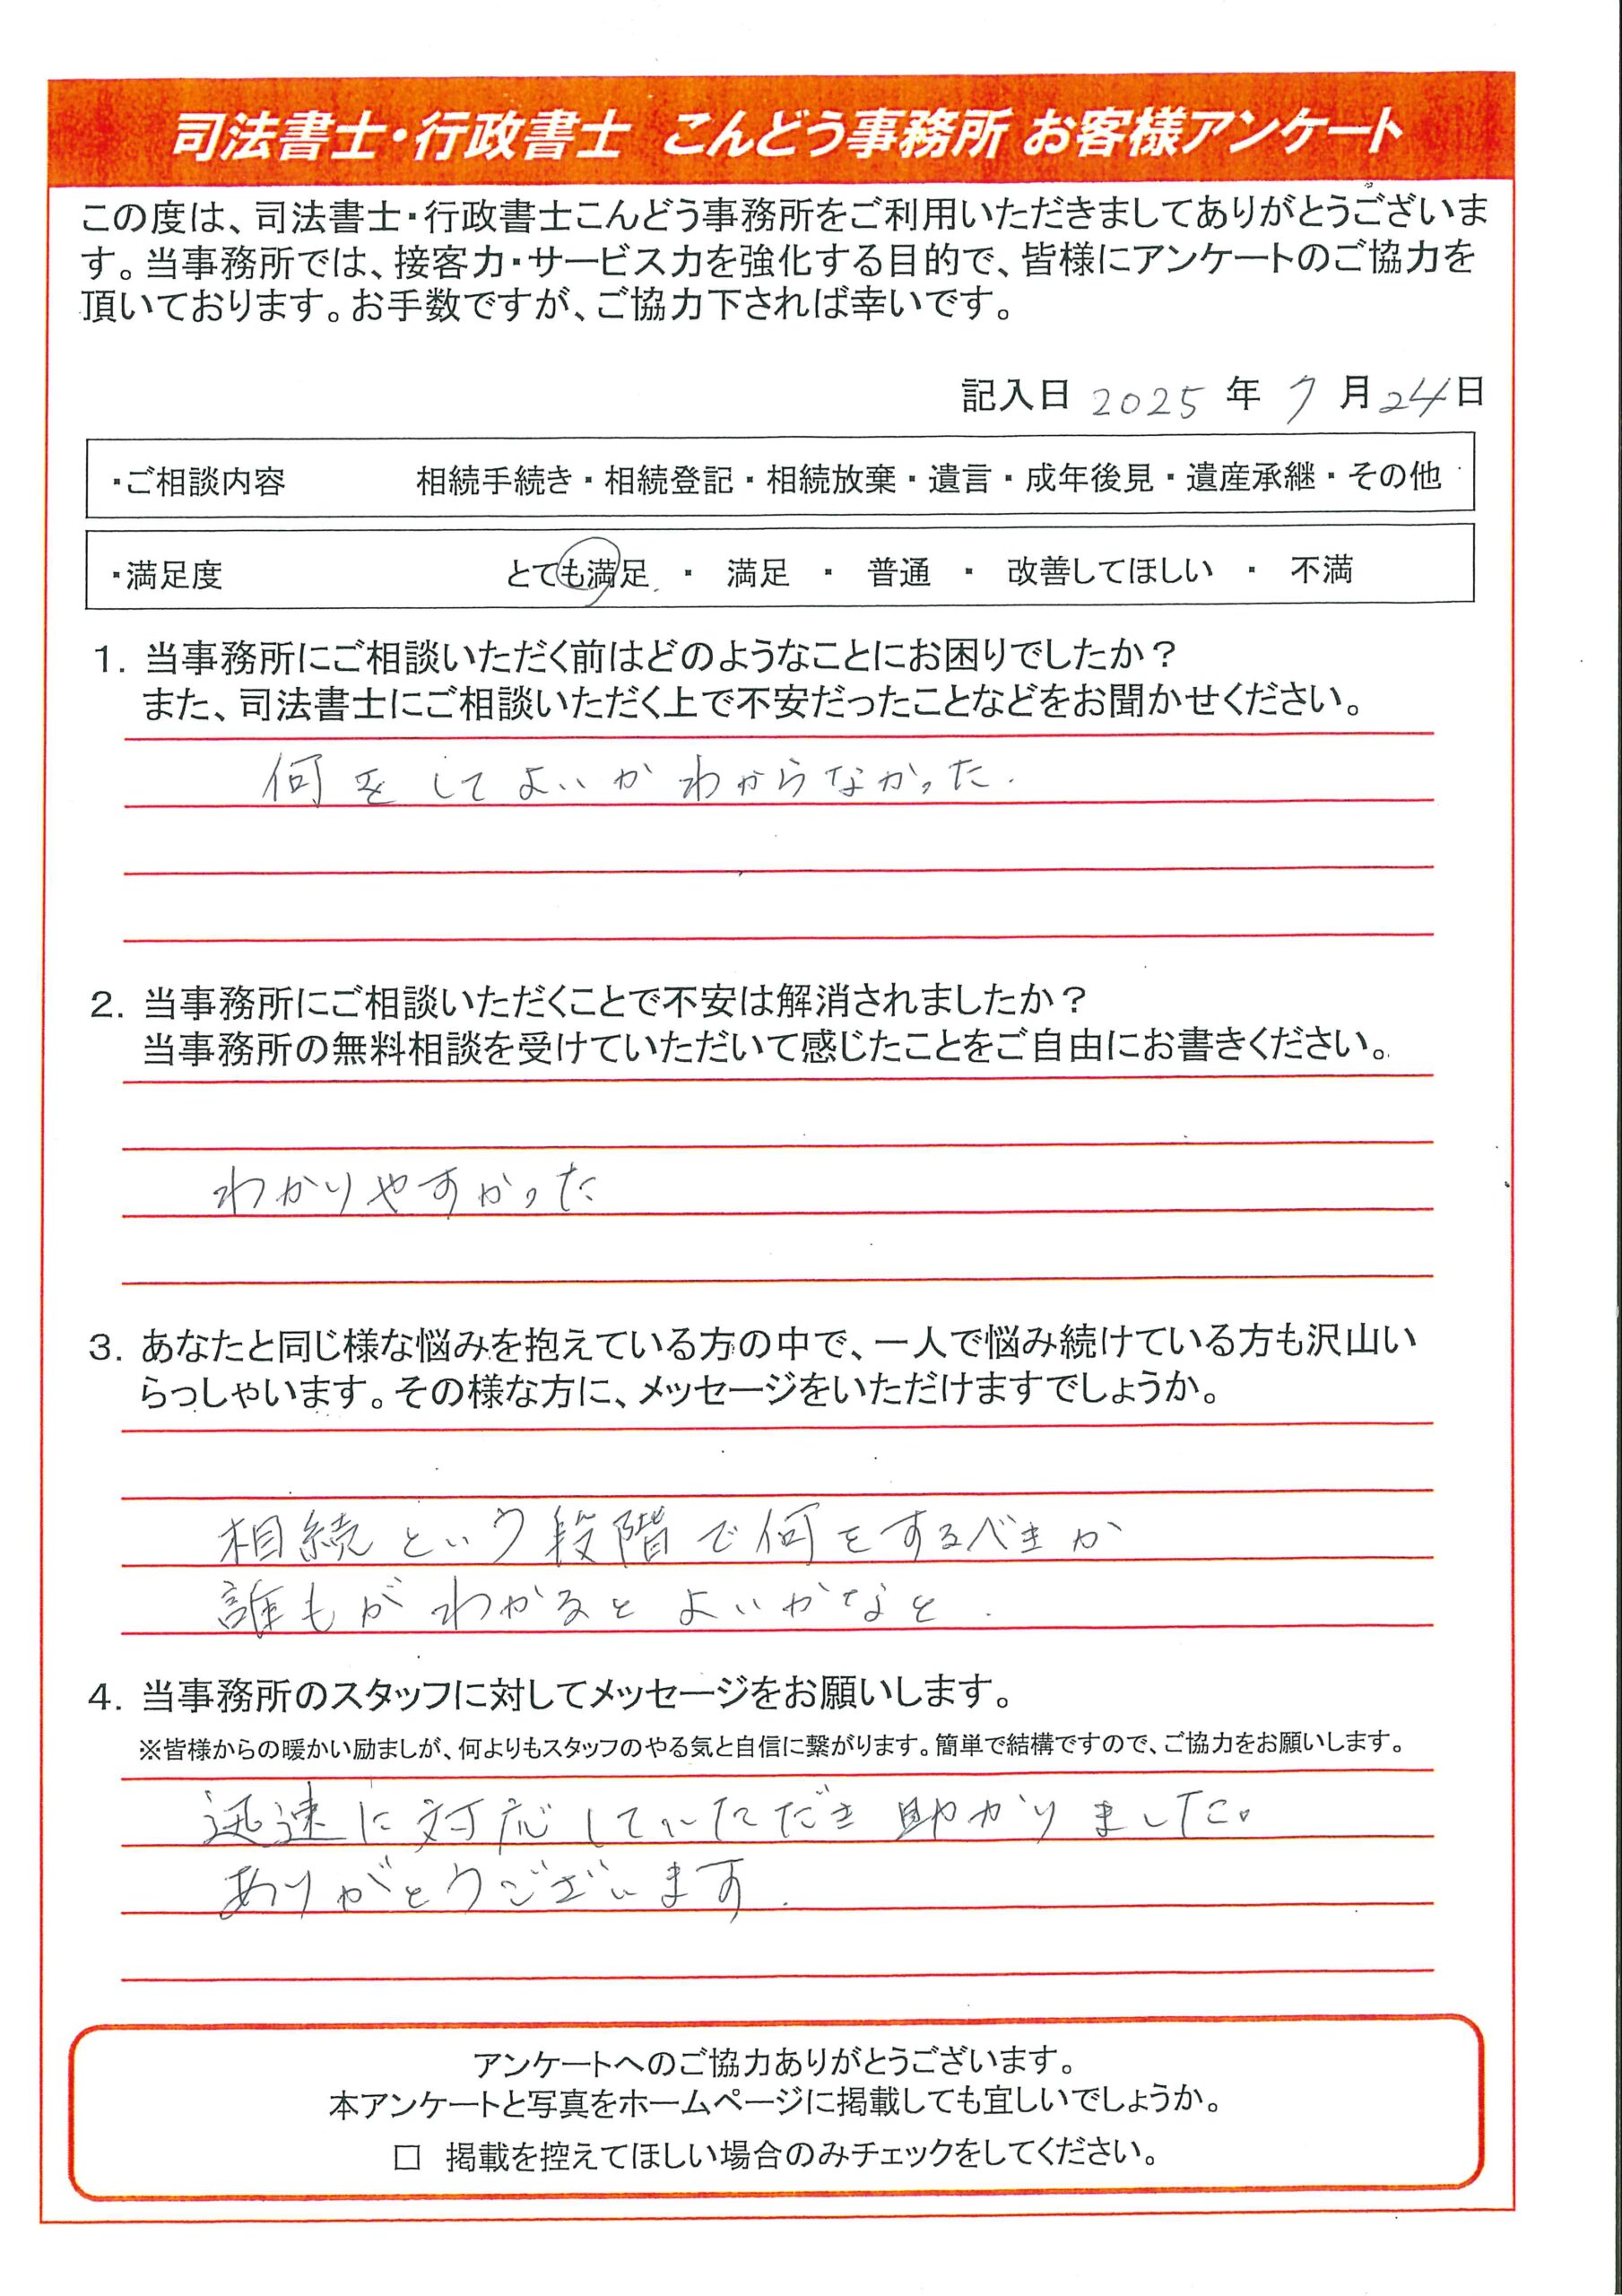 司法書士・行政書士 こんどう事務所 お客様アンケート
この度は、司法書士・行政書士こんどう事務所をご利用いただきましてありがとうございま
す。当事務所では、接客力・サービス力を強化する目的で、皆様にアンケートのご協力を
頂いております。お手数ですが、ご協力下されば幸いです。
記入日 2025 年 7 月 24 日
・ご相談内容 相続手続き・相続登記・相続放棄・遺言・成年後見・遺産承継・その他
・満足度 とても満足 ・ 満足 ・ 普通 ・ 改善してほしい ・ 不満
1. 当事務所にご相談いただく前はどのようなことにお困りでしたか？
また、司法書士にご相談いただく上で不安だったことなどをお聞かせください。
何をしてよいかわからなかった.
2. 当事務所にご相談いただくことで不安は解消されましたか？
当事務所の無料相談を受けていただいて感じたことをご自由にお書きください。
わかりやすかった
3. あなたと同じ様な悩みを抱えている方の中で、一人で悩み続けている方も沢山い
らっしゃいます。その様な方に、メッセージをいただけますでしょうか。
相続という段階で何をするべきか
誰もがわかるとよいかなと.
4. 当事務所のスタッフに対してメッセージをお願いします。
※皆様からの暖かい励ましが、何よりもスタッフのやる気と自信に繋がります。簡単で結構ですので、ご協力をお願いします。
迅速に対応していただき助かりました。
ありがとうございます.
アンケートへのご協力ありがとうございます。
本アンケートと写真をホームページに掲載しても宜しいでしょうか。
□ 掲載を控えてほしい場合のみチェックをしてください。